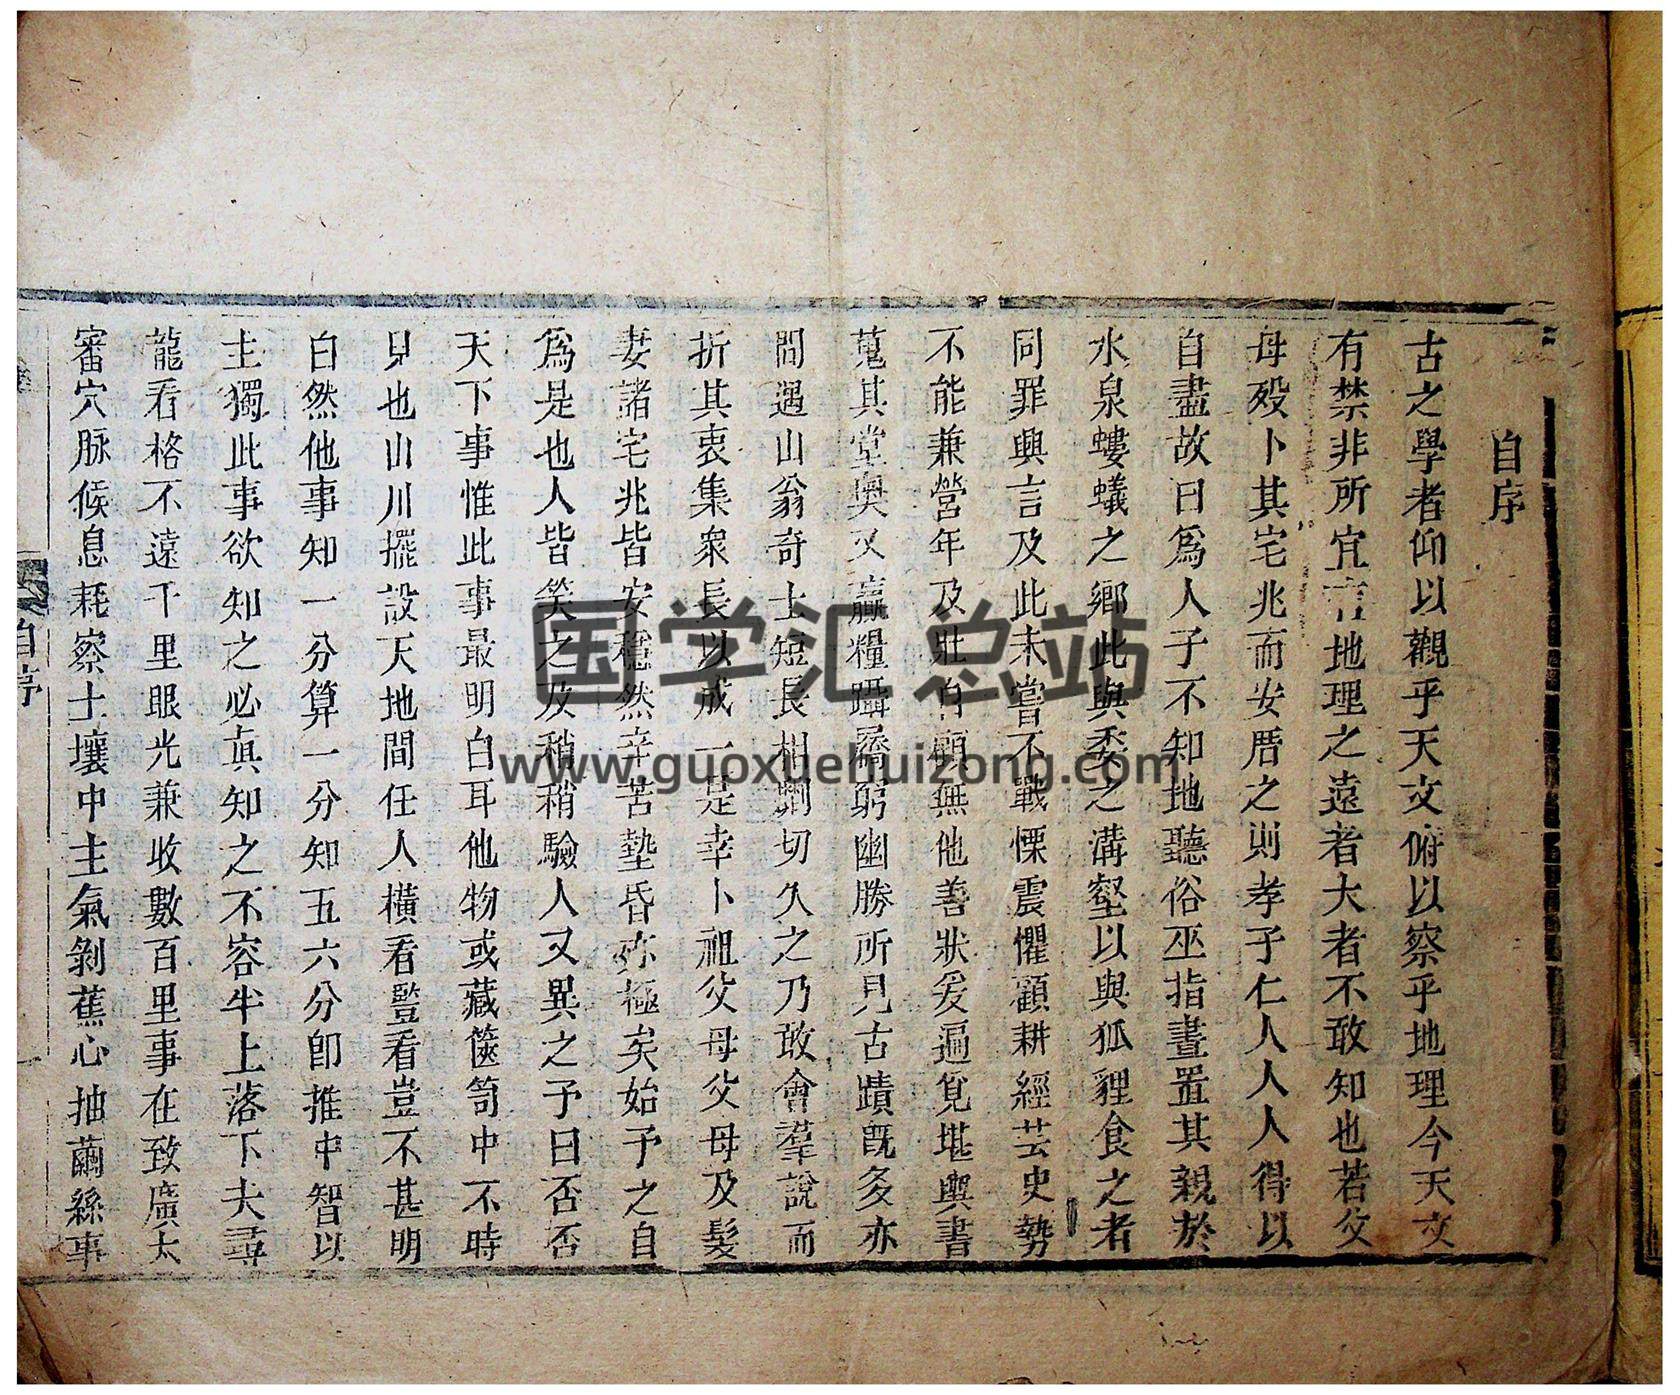 自序
古之學者仰以觀乎天文俯以察乎地理今天文
有禁非所宜言地理之遠者大者不敢知也若父
母歿卜其宅兆而安厝之則孝子仁人人人得以
自盡故曰爲人子不知地聽俗巫指畫置其親於
水泉螻蟻之鄉此與委之溝壑以與狐貍食之者
同罪興言及此未嘗不戰慄震懼顧耕經芸史勢
不能兼營年及壯自顧無他善狀爰遍覓堪輿書
蒐其堂奧又贏糧躡屩窮幽勝所見古蹟既多亦
間遇山翁奇士短長相劘切久之乃敢會羣說而
折其衷集衆長以成一是幸卜祖父母父母及髮
妻諸宅兆皆安穩然辛苦墊昏亦極矣始予之自
爲是也人皆笑之及稍稍驗人又異之予曰否否
天下事惟此事最明白耳他物或藏篋笥中不時
見也山川擺設天地間任人橫看豎看豈不甚明
白然他事知一分算一分知五六分卽推中智以
主獨此事欲知之必眞知之不容半上落下夫尋
龍看格不遠千里眼光兼收數百里事在致廣大
審穴脉候息耗察土壤中主氣剝蕉心抽繭絲事
自序
国学汇总站
www.guoxuehuizong.com